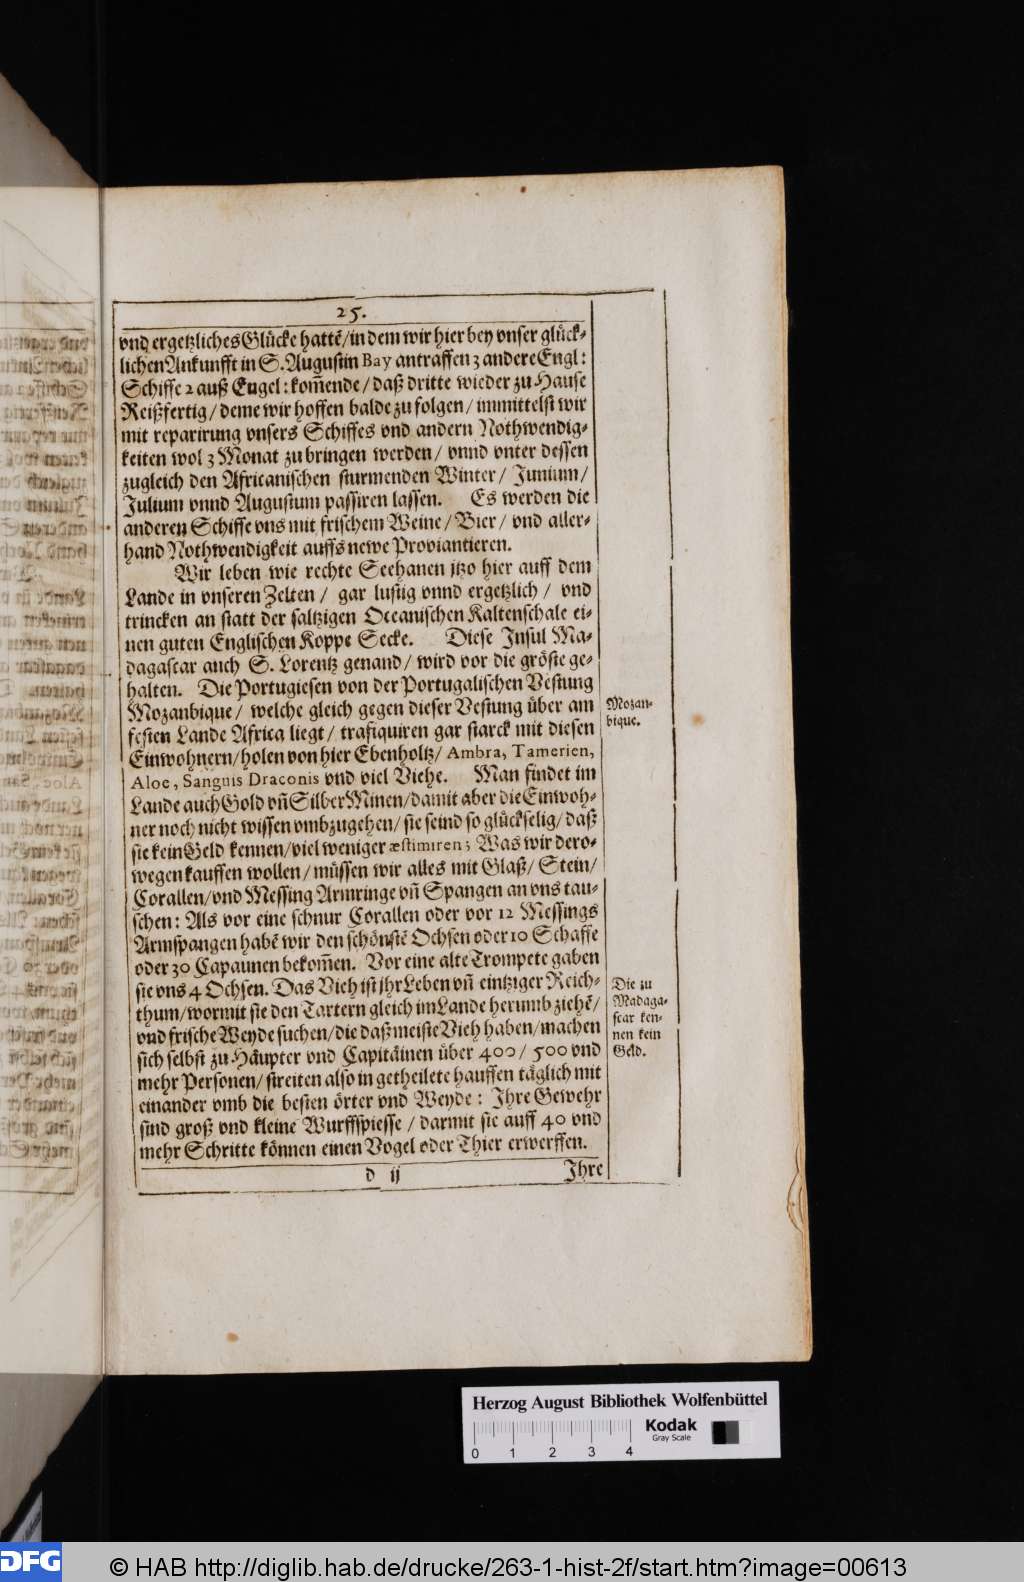 25.
vnd ergetzliches Glücke hattẽ/in dem wir hier bey vnser glück-
lichen Ankunfft in S. Augustin Bay antraffen 3 andere Engl:
Schiffe 2 auß Engel: kom̃ende/ daß dritte wieder zu Hause
Reißfertig/ deme wir hoffen balde zu folgen/ immittelst wir
mit reparirung vnsers Schiffes vnd andern Nothwendig-
keiten wol 3 Monat zu bringen werden/ vnnd vnter dessen
zugleich den Africanischen sturmenden Winter/ Junium/
Julium vnnd Augustum passiren lassen. Es werden die
anderen Schiffe vns mit frischem Weine/ Bier/ vnd aller-
hand Nothwendigkeit auffs newe Proviantieren.
Wir leben wie rechte Seehanen jtzo hier auff dem
Lande in vnseren Zelten/ gar lustig vnnd ergetzlich/ vnd
trincken an statt der saltzigen Oceanischen Kaltenschale ei-
nen guten Englischen Koppe Secke. Diese Insul Ma-
dagascar auch S. Lorentz genand/ wird vor die gröste ge-
halten. Die Portugiesen von der Portugalischen Vestung
Mozanbique/ welche gleich gegen dieser Vestung über am
festen Lande Africa liegt/ trafiquiren gar starck mit diesen
Einwohnern/holen von hier Ebenholtz/ Ambra, Tamerien,
Aloe, Sangnis Draconis vnd viel Viehe. Man findet im
Lande auch Gold vñ Silber Minen/damit aber die Einwoh-
ner noch nicht wissen vmbzugehen/ sie seind so glückselig/ daß
sie kein Geld kennen/viel weniger æstimiren; Was wir dero-
wegen kauffen wollen/ müssen wir alles mit Glaß/ Stein/
Corallen/vnd Messing Armringe vñ Spangen an vns tau-
schen: Als vor eine schnur Corallen oder vor 12 Messings
Armspangen habẽ wir den schönstẽ Ochsen oder 10 Schaffe
oder 30 Capaunen bekom̃en. Vor eine alte Trompete gaben
sie vns 4 Ochsen. Das Vieh ist jhr Leben vñ eintziger Reich-
thum/wormit sie den Tartern gleich im Lande herumb ziehẽ/
vnd frische Weyde suchen/die daß meiste Vieh haben/machen
sich selbst zu Häupter vnd Capitäinen über 400/ 500 vnd
mehr Personen/ streiten also in getheilete hauffen täglich mit
einander vmb die besten örter vnd Weyde: Jhre Gewehr
sind groß vnd kleine Wurffspiesse/ darmit sie auff 40 vnd
mehr Schritte können einen Vogel oder Thier erwerffen.
d ij
Jhre
Mozan-
bique.
Die zu
Madaga-
scar ken-
nen kein
Geld.
Herzog August Bibliothek Wolfenbüttel
0 1 2 3 4
Kodak
Gray Scale
DFG
© HAB http://diglib.hab.de/drucke/263-1-hist-2f/start.htm?image=00613